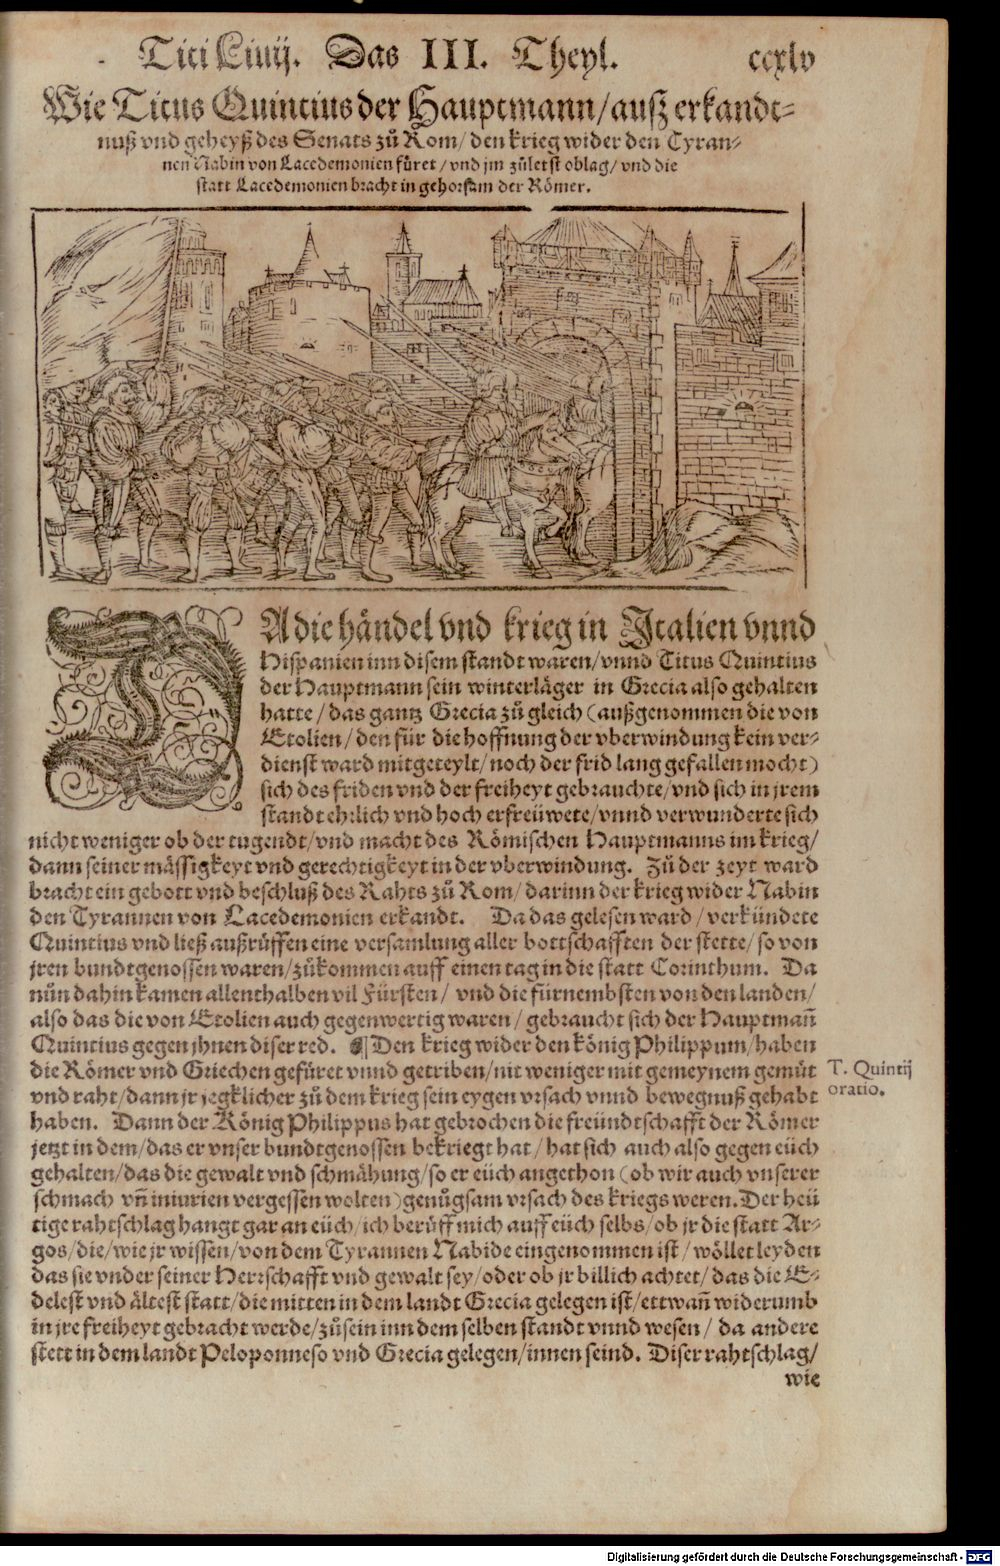 Titi Liuij. Das III. Theyl. ccxlv
Wie Titus Quintius der Hauptmann/ausz erkandt-
nuß vnd geheyß des Senats zů Rom/den krieg wider den Tyran-
nen Nabin von Lacedemonien fůret/vnd jm zůletst oblag/vnd die
statt Lacedemonien bracht in gehorsam der Römer.
DA die håndel vnd krieg in Italien vnnd
Hispanien inn disem standt waren/vnnd Titus Quintius
der Hauptmann sein winterläger in Grecia also gehalten
hatte/das gantz Grecia zů gleich (außgenommen die von
Etolien/den für die hoffnung der vberwindung kein ver-
dienst ward mitgeteylt/noch der frid lang gefallen mocht)
sich des friden vnd der freiheyt gebrauchte/vnd sich in jrem
standt ehrlich vnd hoch erfreüwete/vnnd verwunderte sich
nicht weniger ob der tugendt/vnd macht des Römischen Hauptmanns im krieg/
dann seiner mässigkeyt vnd gerechtigkeyt in der vberwindung. Zů der zeyt ward
bracht ein gebott vnd beschluß des Rahts zů Rom/darinn der krieg wider Nabin
den Tyrannen von Lacedemonien erkandt. Da das gelesen ward/verkündete
Quintius vnd ließ außrůffen eine versamlung aller bottschafften der stette/so von
jren bundtgenossen waren/zůkommen auff einen tag in die statt Corinthum. Da
nůn dahin kamen allenthalben vil Fürsten/ vnd die fürnembsten von den landen/
also das die von Etolien auch gegenwertig waren/gebraucht sich der Hauptmañ
Quintius gegen jhnen diser red. ¶ Den krieg wider den könig Philippum/haben
die Römer vnd Griechen gefůret vnnd getriben/nit weniger mit gemeynem gemůt
vnd raht/dann jr jegklicher zů dem krieg sein eygen vrsach vnnd bewegnuß gehabt
haben. Dann der König Philippus hat gebrochen die freündtschafft der Römer
jetzt in dem/das er vnser bundtgenossen bekriegt hat/hat sich auch also gegen eüch
gehalten/das die gewalt vnd schmåhung/so er eüch angethon (ob wir auch vnserer
schmach vñ iniurien vergessen wolten) genůgsam vrsach des kriegs weren. Der heü
tige rahtschlag hangt gar an eüch/ich berůff mich auff eüch selbs/ob jr die statt Ar-
gos/die/wie jr wissen/von dem Tyrannen Nabide eingenommen ist/wöllet leyden
das sie vnder seiner Herrschafft vnd gewalt sey/oder ob jr billich achtet/das die E-
delest vnd ältest statt/die mitten in dem landt Grecia gelegen ist/ettwañ widerumb
in jre freiheyt gebracht werde/zůsein inn dem selben standt vnnd wesen/ da andere
stett in dem landt Peloponneso vnd Grecia gelegen/innen seind. Diser rahtschlag/
wie
T. Quintij
oratio.
Digitalisierung gefördert durch die Deutsche Forschungsgemeinschaft - DFG